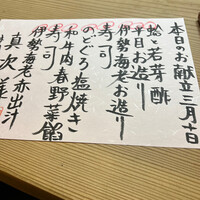 本日のお献立三月十日
蛤と若芽 酢
平目お造り
伊勢海老お造り
寿司
のどぐろ塩焼き
和牛内春野菜餡
寿司
伊勢海老赤出汁
真次